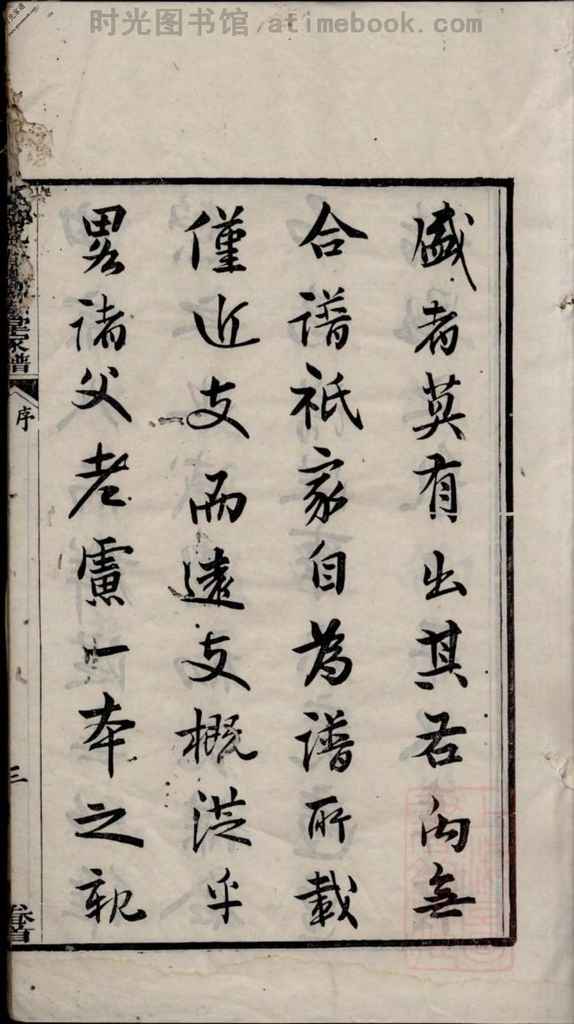 时光图书馆 atimebook.com
盛者莫有出其右向無
合譜祇家自為譜所載
僅近支而遠支概從乎
畧諸父老慮一本之親
堂家譜
序
三
卷首